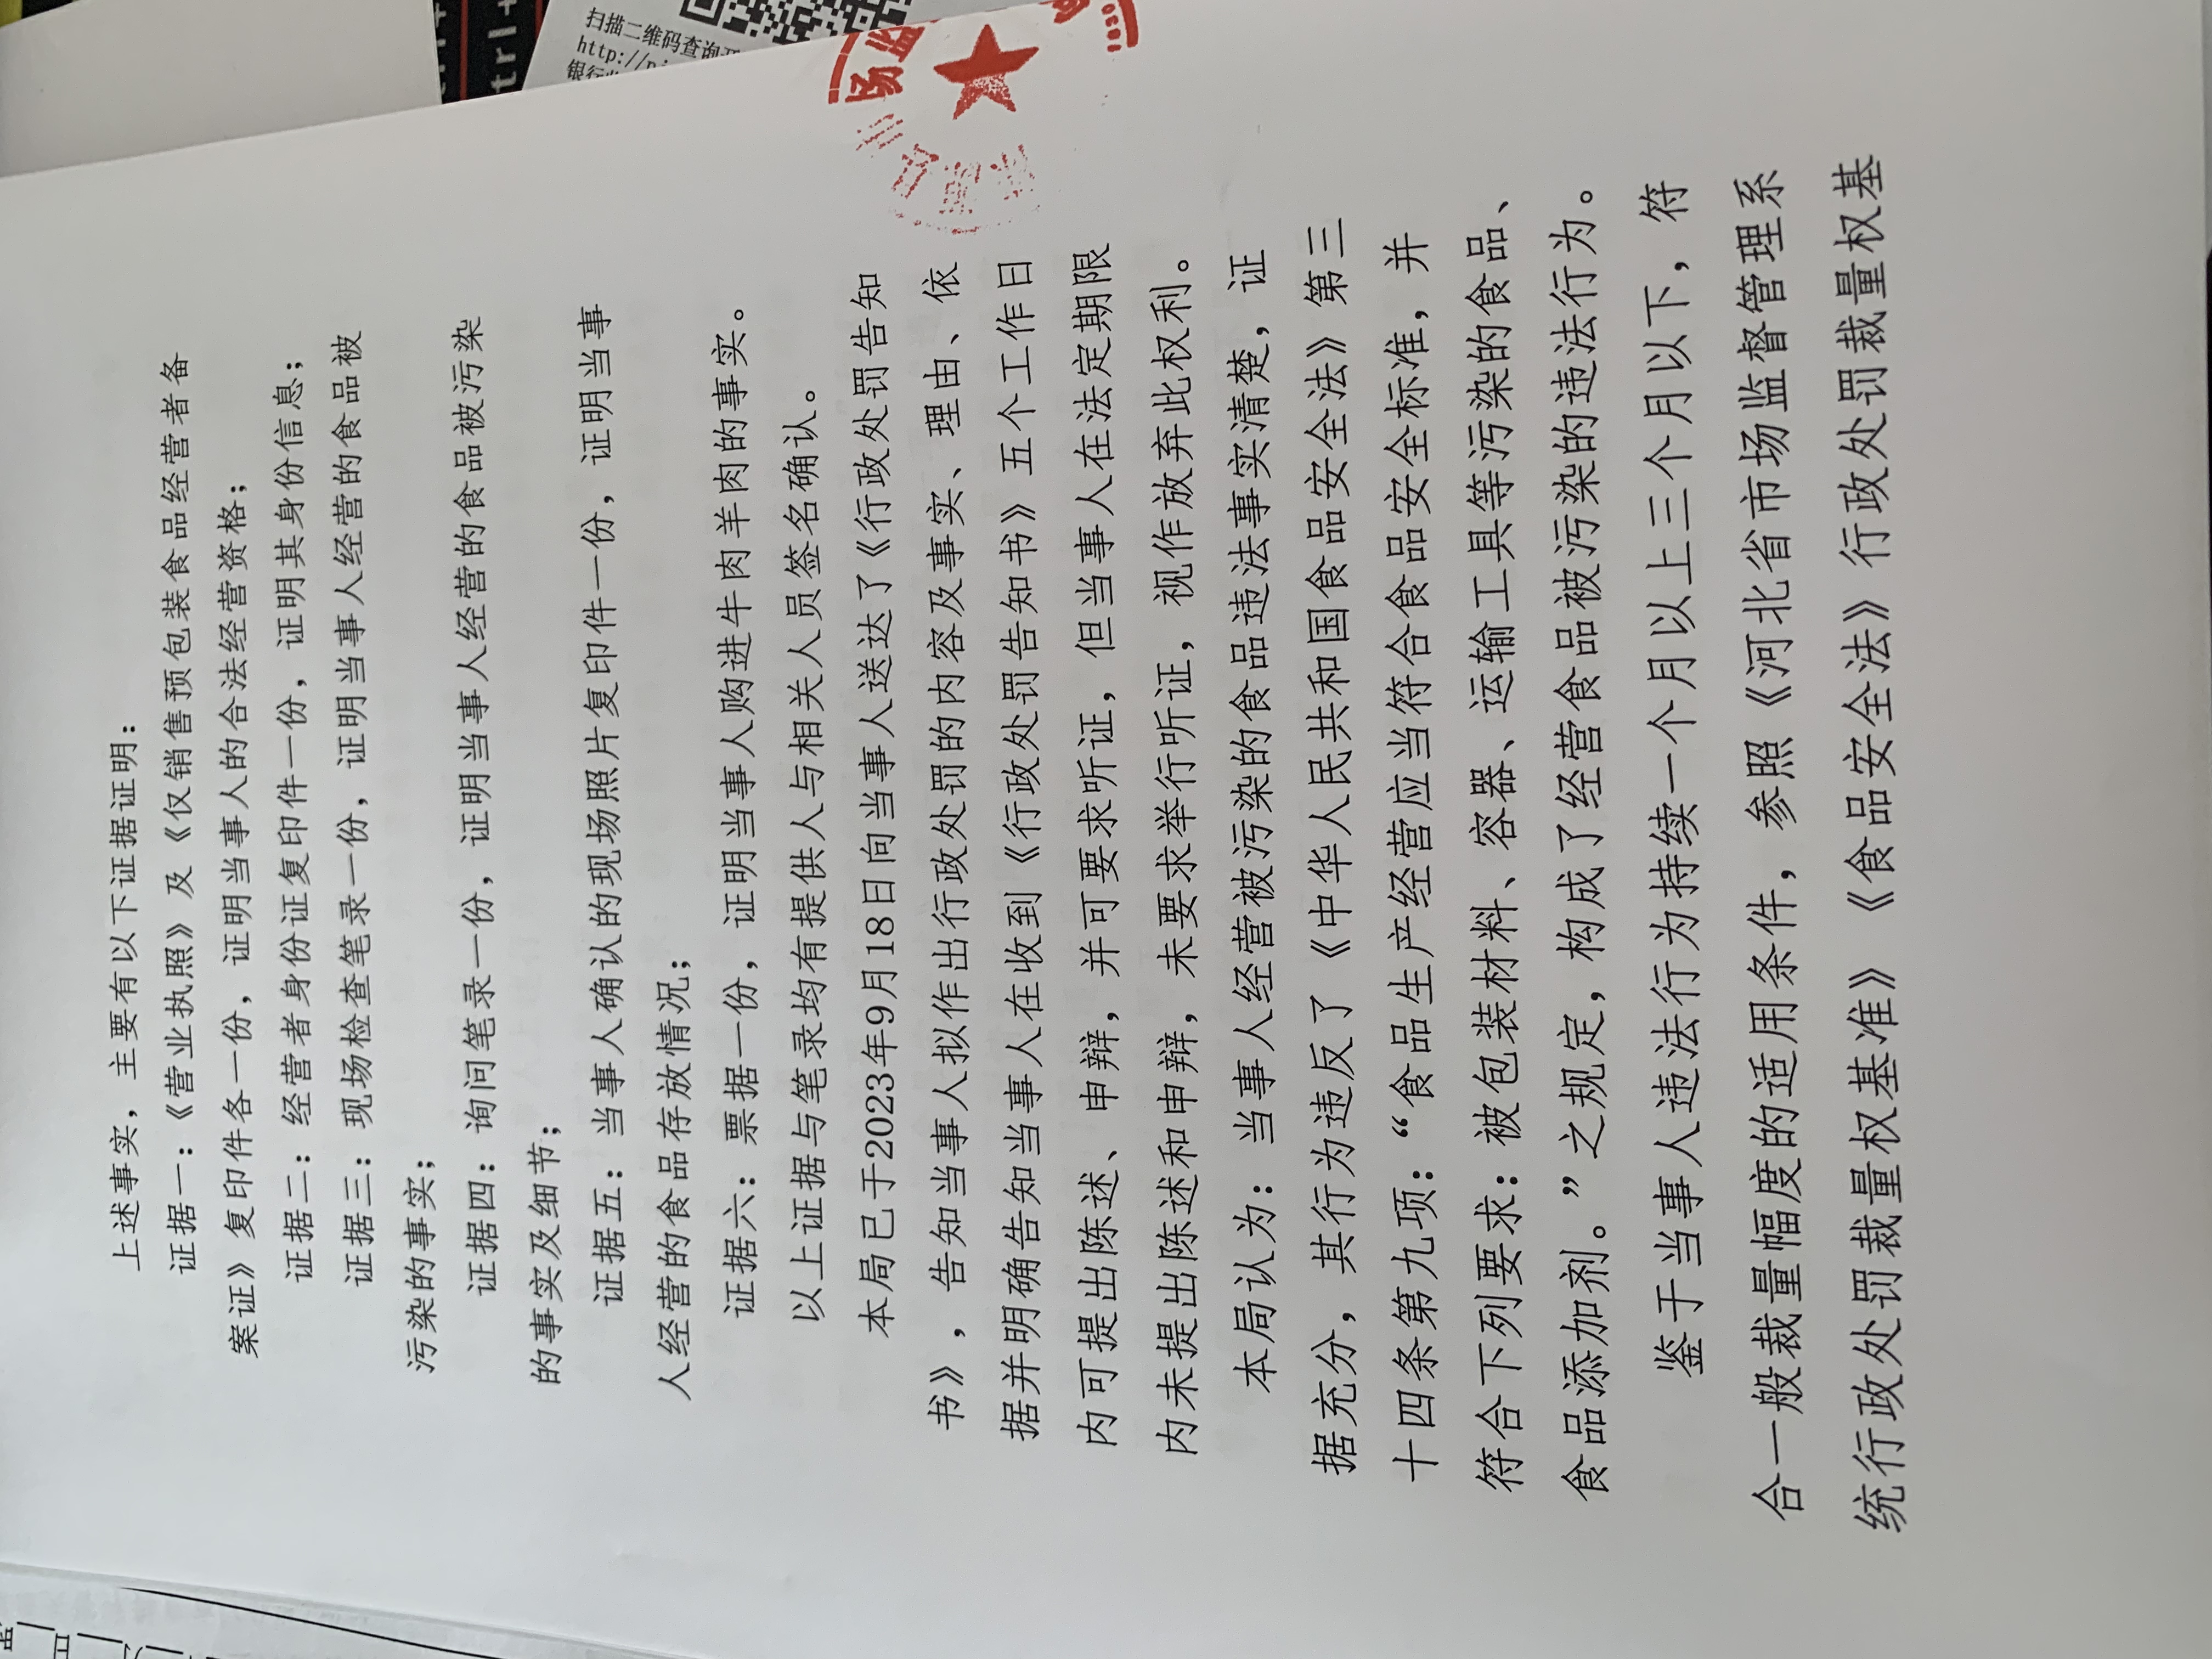 上述事实，主要有以下证据证明：
证据一：《营业执照》及《仅销售预包装食品经营者备
案证》复印件各一份，证明当事人的合法经营资格；
证据二：经营者身份证复印件一份，证明其身份信息；
证据三：现场检查笔录一份，证明当事人经营的食品被
污染的事实；
证据四：询问笔录一份，证明当事人经营的食品被污染
的事实及细节；
证据五：当事人确认的现场照片复印件一份，证明当事
人经营的食品存放情况；
证据六：票据一份，证明当事人购进牛肉羊肉的事实。
以上证据与笔录均有提供人与相关人员签名确认。
本局已于2023年9月18日向当事人送达了《行政处罚告知
书》，告知当事人拟作出行政处罚的内容及事实、理由、依
据并明确告知当事人在收到《行政处罚告知书》五个工作日
内可提出陈述、申辩，并可要求听证，但当事人在法定期限
内未提出陈述和申辩，未要求举行听证，视作放弃此权利。
本局认为：当事人经营被污染的食品违法事实清楚，证
据充分，其行为违反了《中华人民共和国食品安全法》第三
十四条第九项：“食品生产经营应当符合食品安全标准，并
符合下列要求：被包装材料、容器、运输工具等污染的食品、
食品添加剂。”之规定，构成了经营食品被污染的违法行为。
鉴于当事人违法行为为持续一个月以上三个月以下，符
合一般裁量幅度的适用条件，参照《河北省市场监督管理系
统行政处罚裁量权基准》《食品安全法》行政处罚裁量权基
扫描二维码查询
http://
银行
场监
trl+